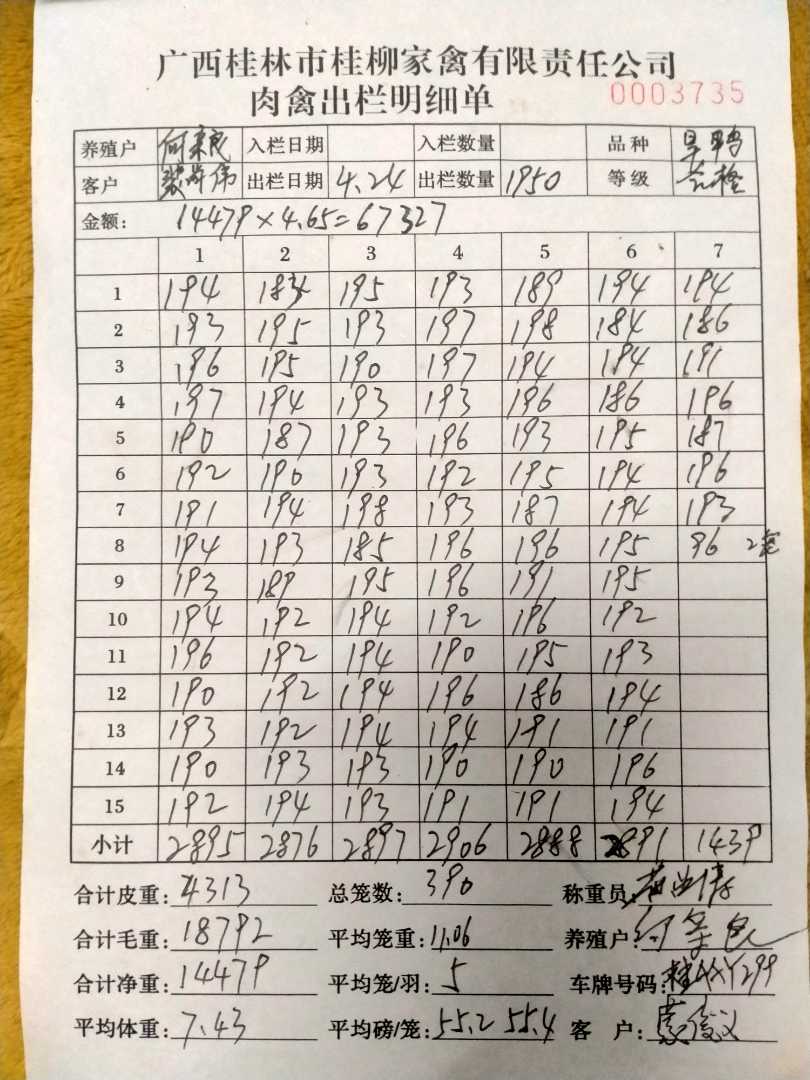 广西桂林市桂柳家禽有限责任公司
肉禽出栏明细单 0003735
养殖户 入栏日期 入栏数量 品种
客户 出栏日期 4.24 出栏数量 1950 等级
金额: 14479×4.65=67327
1 2 3 4 5 6 7
1 194 184 195 193 189 194 194
2 193 195 193 197 198 184 186
3 196 195 190 197 194 194 191
4 197 194 193 193 196 186 196
5 190 187 193 196 193 195 187
6 192 190 193 192 195 194 196
7 191 194 198 193 187 194 193
8 194 193 185 196 196 195 96 2笼
9 193 189 195 196 191 195
10 194 192 194 192 196 192
11 196 192 194 190 195 193
12 190 192 194 196 186 194
13 193 192 194 194 191 191
14 190 193 193 190 190 196
15 192 194 193 191 191 194
小计 2895 2876 2897 2906 2888 2891 1439
合计皮重: 4313 总笼数: 390 称重员:
合计毛重: 18792 平均笼重: 11.06 养殖户:
合计净重: 14479 平均笼/羽: 5 车牌号码:
平均体重: 7.43 平均磅/笼: 55.2 55.4 客 户: